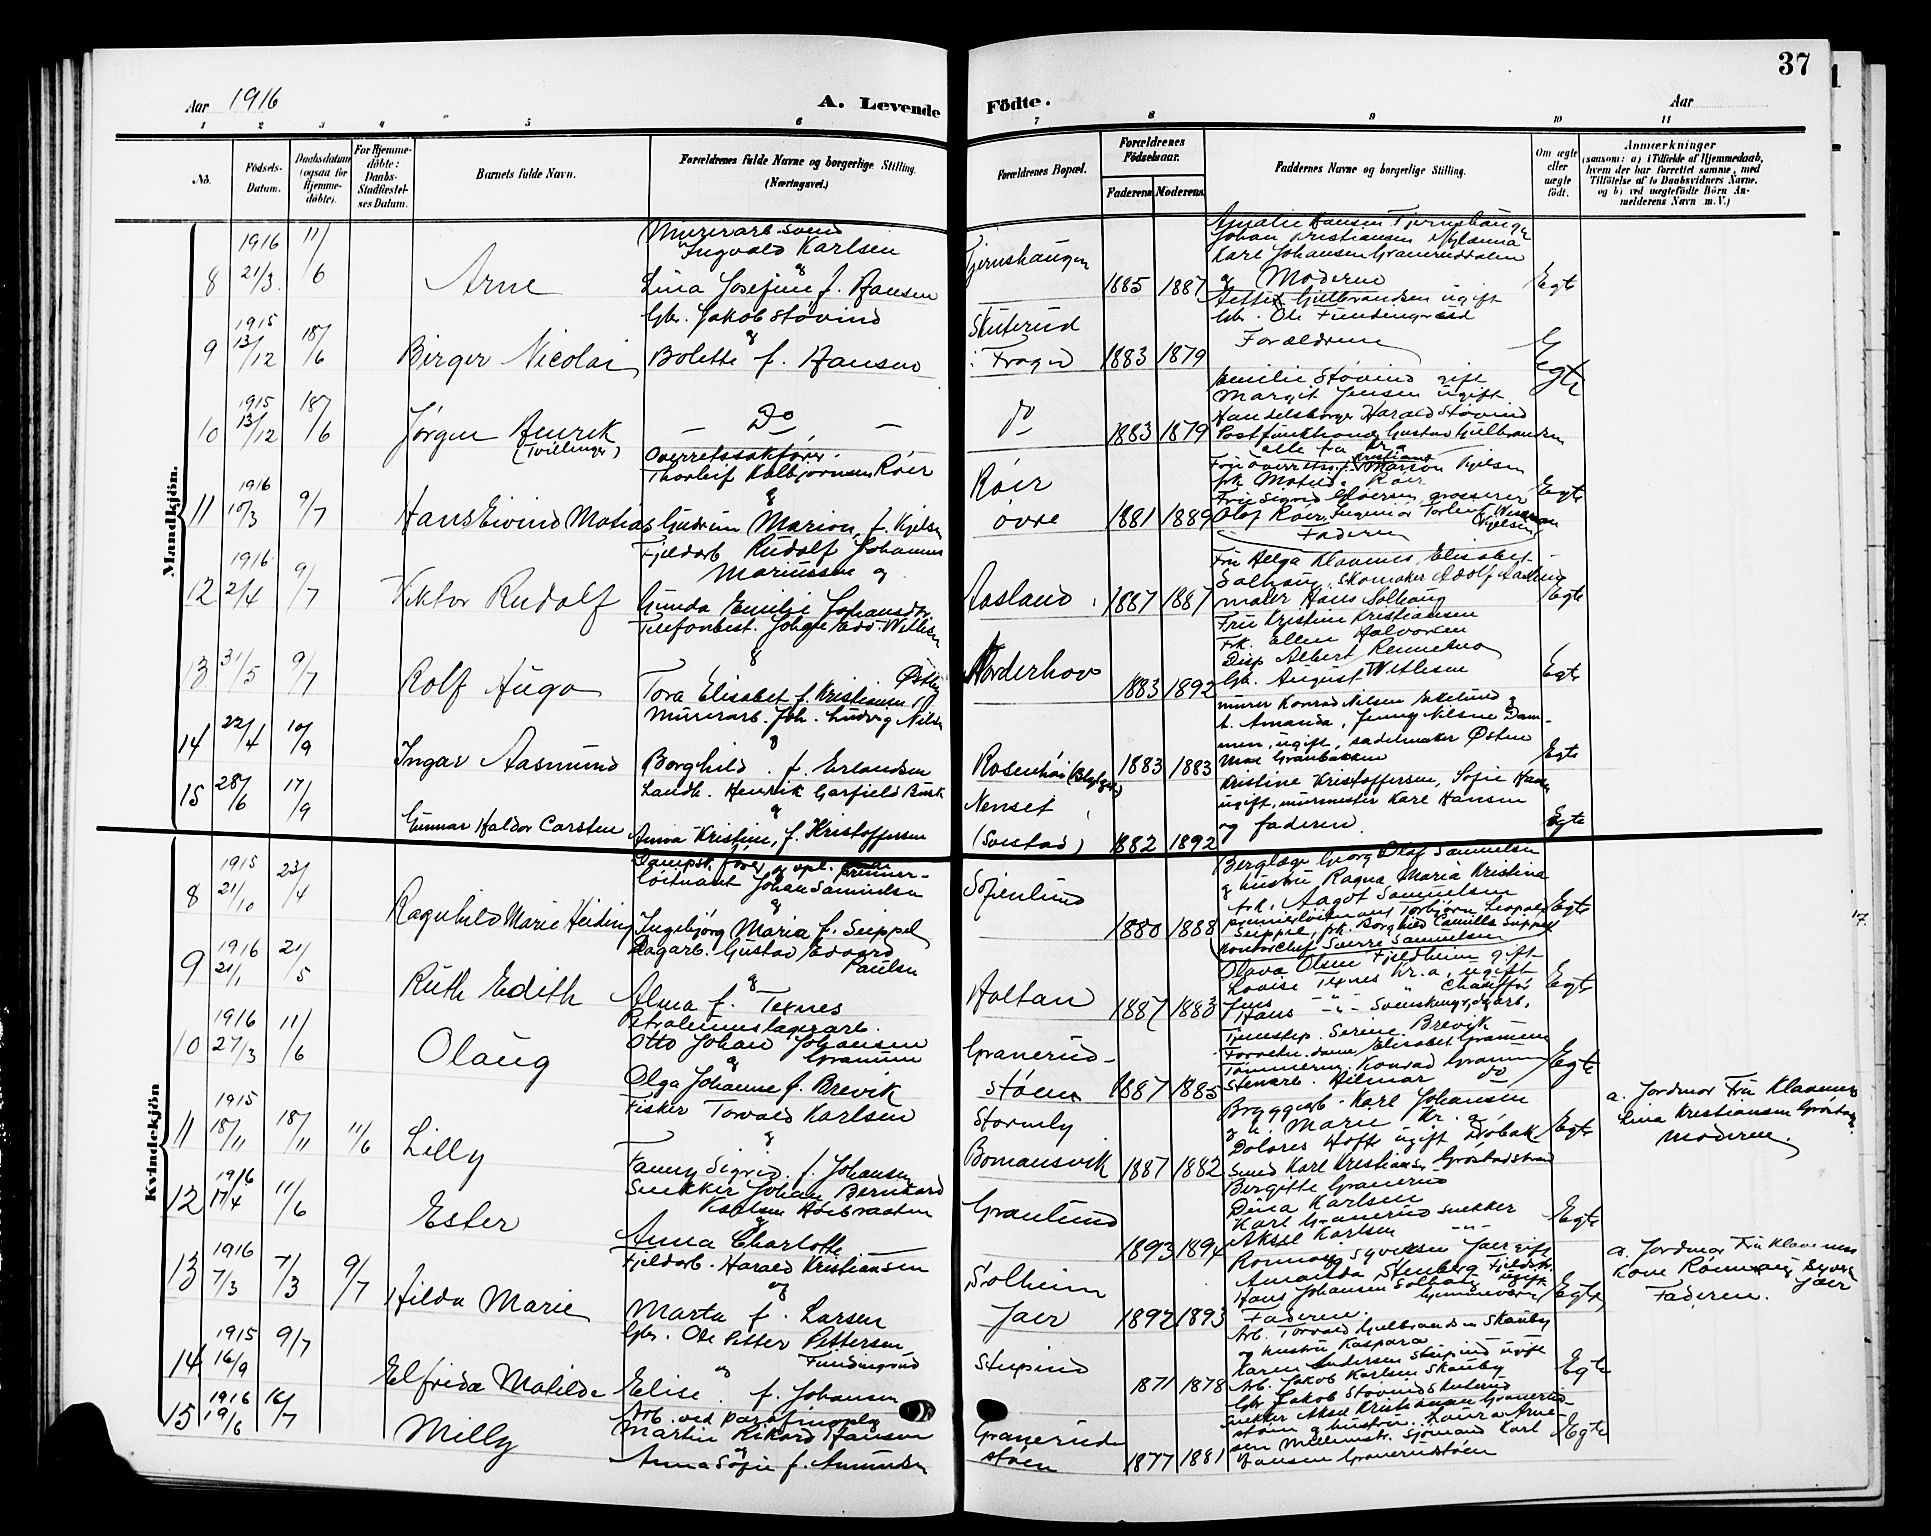 37
Aar 1916
A. Levende Födte.
Aar
1 2 3 4 5 6 7 8 9 10 11
No.
Födsels-Datum.
Daabsdatum (ogsaa for Hjemme-döbte).
For Hjemme-döbte: Daabs-Stadfæstel-ses Datum.
Barnets fulde Navn.
Forældrenes fulde Navne og borgerlige Stilling. (Næringsvei.)
Forældrenes Bopæl.
Forældrenes Födselsaar.
Faderens Moderens
Faddernes Navne og borgerlige Stilling.
Om ægte eller uægte födt.
Anmærkninger
(saasom: a) i Tilfælde af Hjemmedaab,
hvem der har forrettet samme, med
Tilföielse af to Daabsvidners Navne,
og b) ved uægtefödte Börn An-
melderens Navn m. V.)
Mandkjön.
8 1916 21/3 11/6 Arne
Murerarb. svend
Ingvald Karlsen
&
Lina Josefine f. Hansen
Tjernshaugen 1885 1887
Amalie Hansen Tjernshaugen
Johan Kristiansen
Karl Johansen Graneruddalen
og Moderen
Egte
9 1915 13/12 18/6 Birger Nicolai
Gbr. Jakob Støvind
&
Bolette f. Hansen
Skuterud i Frogn 1883 1879
Gulbrandsen ugift
Gbr. Ole Fundingsrud
Forældrene
Egte
10 1915 13/12 18/6 Jørgen Henrik
(Tvillinger)
— Do —
do 1883 1879
Emilie Støvind gift
Margit Jensen ugift
Handelsborger Harald Støvind
Postfunktionær Gustav Gulbrandsen
alle fra Kr.a
11 1916 10/3 9/7 Hans Eivind Matias
Overretssakfører
Thorleif Kolbjørnsen Röer
&
Gudrun Marion, f. Kjelsen
Röer øvre 1881 1889
Marion Kjelsen
frk. Röer
Fru Sigrid grosserer
Olaf Röer, Ingeniør Torleif
Faderen
Egte
12 1916 2/4 9/7 Viktor Rudolf
Fjeldarb. Rudolf Johannes
Mariussen og
Gunda Emilie Johansdtr
Aasland 1887 1887
Fru Helga Klavenes, Elisabet
Solhaug, skomaker Adolf
maler Hans Solhaug
Egte
13 31/5 9/7 Rolf Hugo
Telefonbest. Johan Edv. Wetlesen
&
Tora Elisabet f. Kristiansen, Østby
Norderhov 1883 1892
Fru Kristine Kristiansen
Frk. Ellen Halvorsen
Disp Albert
Gbr. August Wetlesen
Egte
14 22/4 10/9 Ingar Aasmund
Murerarb. Joh. Ludvig Nilsen
&
Borghild f. Erlandsen
Rosenhöi 1883 1883
murer Konrad Nilsen Ekelund og
h. Amanda, Jenny Nilsine Dam-
men, ugift, sadelmaker Østen
Granbakken
Egte
15 28/6 17/9 Gunnar Haldor Carsten
Landh. Henrik Garfield Burk
&
Anna Kristine, f. Kristoffersen
Nenset
(Svestad) 1882 1892
Kristine Kristoffersen, Sofie Hansen
ugift, murmester Karl Hansen
og faderen.
Egte
Kvindekjön
8 1915 21/10 23/4 Ragnhild Marie Heiding
Dampsk. fører og vpl. premier-
löitnant Johan Samuelsen
&
Ingebjörg Maria f. Seippel
Sofienlund 1880 1888
Georg Olaf Samuelsen
og hustru Ragna Maria Kristina
frk. Aagot Samuelsen
premierløitnant Torbjörn Leopold
Seippel, frk. Borghild Camilla Seippel
kontorchef Sverre Samuelsen
Egte
9 1916 21/1 21/5 Ruth Edith
Dagarb. Gustav Edvard
Paulsen
&
Alma f. Texnes
Holtan 1887 1883
Olava Olsen Fjeldheim gift
Lovise Texnes Kr.a, ugift
Jens — " — " Chauffør
Hans — " — Svenskingr, dgarb.
Egte
10 1916 27/3 11/6 Olaug
Petroleumslagerarb.
Otto Johan Johansen
& Granum
Olga Johanne f. Brevik
Granerud-
støen 1887 1885
Tjenestep. Serine Brevik
Forretn. dame Elisabet Granum
Tömmerm. Konrad Granum
Stenarb. Hilmar do
Egte
11 1915 18/11 18/11 11/6 Lilly
Fisker Torvald Karlsen
&
Fanny Sigrid f. Johansen
Stornly
Bomansvik 1887 1882
Bryggearb. Karl Johansen
og h. Marie Kr.a
Dolores Hoff ugift Dröbak
Smed Karl Kristiansen Grøstadstrand
Egte
a. Jordmor Fru Klavenes
Lina Kristiansen
Moderen.
12 1916 17/4 11/6 Ester
Snekker Johan Bernhard
Karlsen Höibraaten
&
Anna Charlotte —
Granlund 1893 1894
Bergitte Granerud
Dina Karlsen
Karl Granerud snekker
Aksel Karlsen — " —
Egte
13 1916 7/3 7/3 9/7 Hilda Marie
Fjeldarb. Harald Kristiansen
og
Marta f. Larsen
Solheim
Jaer 1892 1893
Ronnaug Syversen Jaer gift
Amanda Stenberg
Hans Johansen Solhaug ugift
Faderen.
Egte
a. Jordmor Fru Klavenes
Kone Ronnaug Syvers.
Jaer
Faderen.
14 1915 16/9 9/7 Elfrida Matilde
Gbr. Ole Petter Pettersen
og Fundingsrud
Elise f. Johansen
Stupind 1871 1878
Arb. Torvald Gulbrandsen Skauby
og hustru Kaspara
Karen Andersen Stupind ugift
Arb. Jakob Karlsen Skauby
Gbr. Jakob Støvind Skuterud
Egte
15 1916 19/6 16/7 Milly
Arb. ved parafinoplg
Martin Rikard Hansen
&
Anna Sofie f. Amundsen
Granerud
støen 1877 1881
Snekker Aksel Kristiansen Granerud-
støen og hustru. Laura Arne-
sen Sjömand Karl
Hansen Granerudstøen
Egte